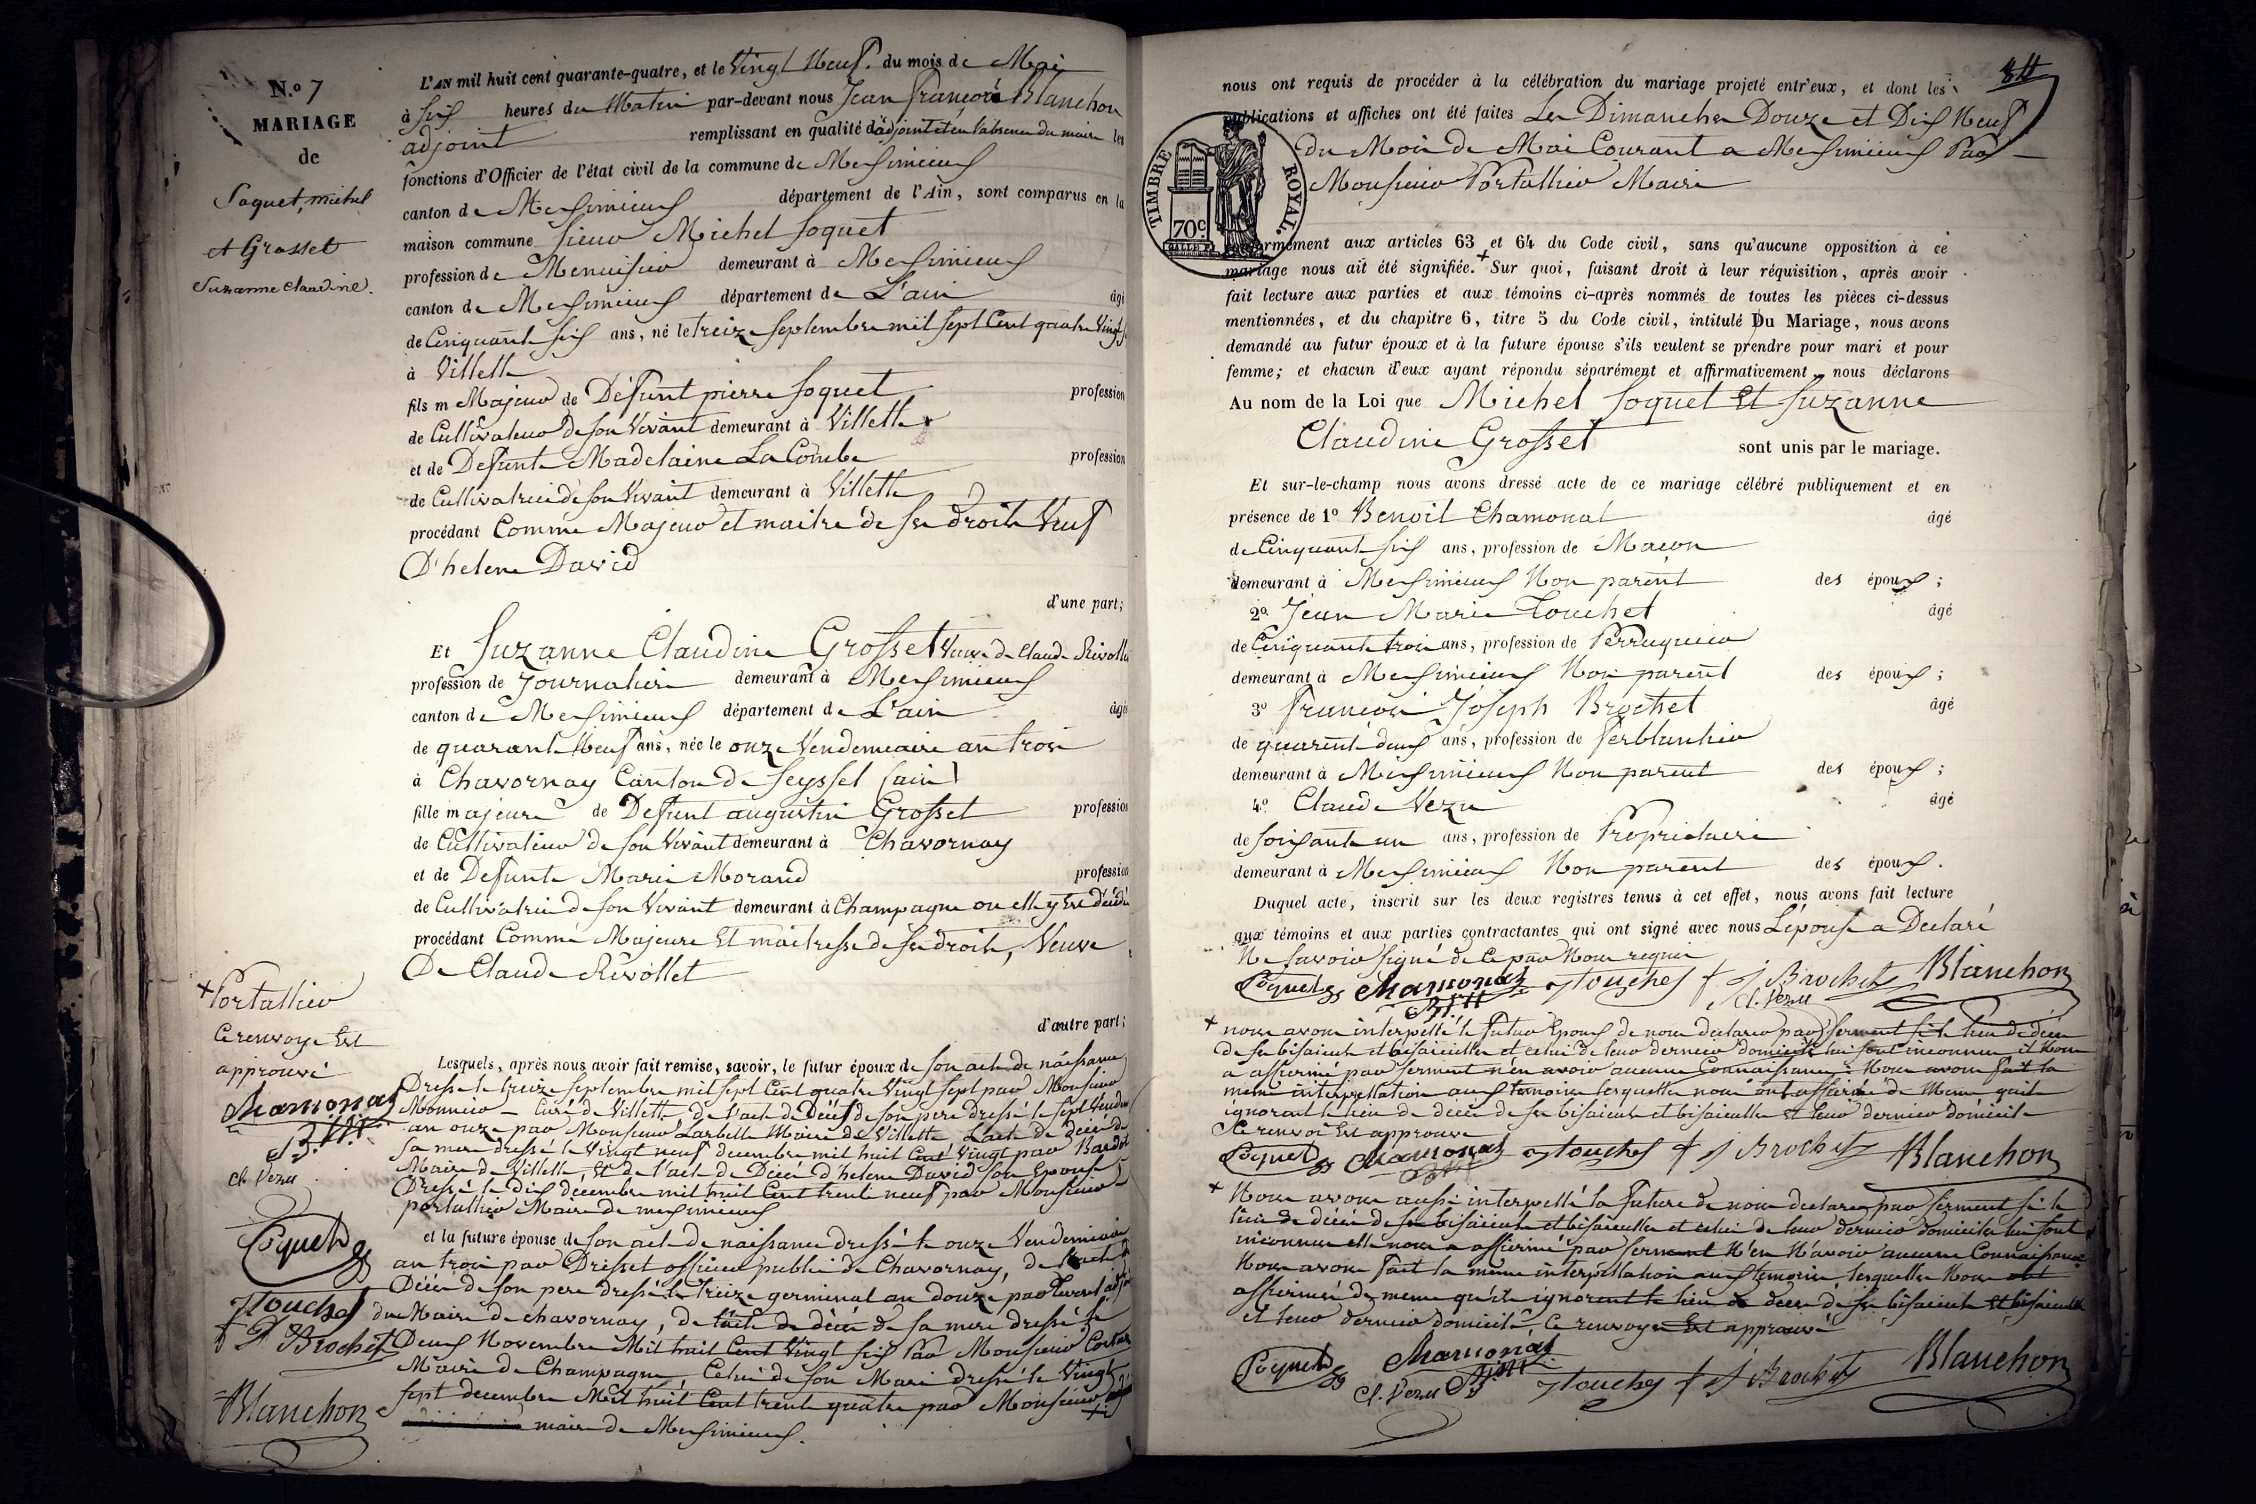 N.o 7
MARIAGE
de
Soquet, michel
et Grosset
Suzanne Claudine.
L'AN mil huit cent quarante-quatre, et le Vingt Neuf. du mois de Mai
à six heures du Matin par-devant nous Jean François Blanchon
adjoint remplissant en qualité d'adjoint et en l'absence du maire les
fonctions d'Officier de l'état civil de la commune de Meximieux
canton de Meximieux département de l'Ain, sont comparus en la
maison commune sieur Michel Soquet
profession de Menuisier demeurant à Meximieux
canton de Meximieux département de L'ain âgé
de Cinquante six ans, né le treize Septembre mil sept Cent quatre Vingt
à Villette
fils m Majeur de Défunt pierre Soquet profession
de Cultivateur de son Vivant demeurant à Villette
et de Defunte Madelaine La Combe profession
de Cultivatrice de son Vivant demeurant à Villette
procédant Comme Majeur et maitre de ses droits Veuf
D'helene David
d'une part;
Et Suzanne Claudine Grosset Veuve de Claude Rivollet
profession de Journalière demeurant à Meximieux
canton de Meximieux département de L'ain âgée
de quarante Neuf ans, née le onze Vendemiaire an trois
à Chavornay Canton de Seyssel (ain)
fille majeure de Defunt augustin Grosset profession
de Cultivateur de son Vivant demeurant à Chavornay
et de Defunte Marie Morand profession
de Cultivatrice de son Vivant demeurant à Champagne ou elle y Est décédée
procédant Comme Majeure Et maitresse de ses droits, Veuve
De Claude Rivollet
d'autre part;
Lesquels, après nous avoir fait remise, savoir, le futur époux de son acte de naissance
Dressé le treize Septembre mil sept Cent quatre Vingt sept par Monsieur
Monnier - Curé de Villette, de l'acte de Décès de son pere dressé le sept Vendre
an onze par Monsieur Larbelle Maire de Villette, L'acte de décès de
sa mere dressé le Vingt neuf decembre mil huit Cent Vingt par Bardot
Maire de Villette, Et de l'acte de Décès d'helene David son Epouse
Dressé le dix décembre mil huit Cent trente neuf par Monsieur
portallier Maire de meximieux
et la future épouse de son acte de naissance dressé le onze Vendemiaire
an trois par Drisset officier public de Chavornay, de l'acte de
Décès de son pere dressé le treize germinal an douze par
du Maire de chavornay, de l'acte de décès de sa mere dressé le
Deux Novembre Mil huit Cent Vingt six Par Monsieur
Maire de Champagne, Celui de son Mari dressé le Vingt
sept decembre Mil huit Cent trente quatre par Monsieur +
maire de Meximieux.
+ Portallier
Ce renvoye Est
approuvé
Chamonal
Cl. Vezu
Soquet
J Touchet
+ J Brochet
Blanchon
34
nous ont requis de procéder à la célébration du mariage projeté entr'eux, et dont les
publications et affiches ont été faites Les Dimanches Douze et Dix Neuf
du Mois de Mai Courant a Meximieux Par
Monsieur Portallier Maire
TIMBRE ROYAL.
70c
conformément aux articles 63 et 64 du Code civil, sans qu'aucune opposition à ce
mariage nous ait été signifiée. + Sur quoi, faisant droit à leur réquisition, après avoir
fait lecture aux parties et aux témoins ci-après nommés de toutes les pièces ci-dessus
mentionnées, et du chapitre 6, titre 5 du Code civil, intitulé Du Mariage, nous avons
demandé au futur époux et à la future épouse s'ils veulent se prendre pour mari et pour
femme; et chacun d'eux ayant répondu séparément et affirmativement, nous déclarons
Au nom de la Loi que Michel Soquet Et Suzanne
Claudine Grosset sont unis par le mariage.
Et sur-le-champ nous avons dressé acte de ce mariage célébré publiquement et en
présence de 1o Benoit Chamonal âgé
de Cinquante six ans, profession de Macon
demeurant à Meximieux Non parent des époux;
2o Jean Marie Touchet âgé
de Cinquante trois ans, profession de Perruquier
demeurant à Meximieux Non parent des époux;
3o François Joseph Brochet âgé
de quarente deux ans, profession de ferblantier
demeurant à Meximieux Non parent des époux;
4o Claude Vezu âgé
de soixante un ans, profession de Propriétaire
demeurant à Meximieux Non parent des époux.
Duquel acte, inscrit sur les deux registres tenus à cet effet, nous avons fait lecture
aux témoins et aux parties contractantes qui ont signé avec nous L'épouse a Declaré
Ne savoir signé de Ce par Nous requis
Soquet Chamonal J Touchet + J Brochet Blanchon
Cl. Vezu
+ nous avons interpellé le futur Epoux de nous declarer par serment si le lieu de décès
de ses bisaieuls et bisaieulles et celui de leur dernier domicile lui sont inconnus il Nous
a affirmé par serment n'en avoir aucune Connaissance. Nous avons fait la
meme interpellation aux temoins lesquelles nous ont affirmé de Meme qu'ils
ignorent le lieu de décès de ses bisaieuls et bisaieulles et leur dernier domicile
Ce renvoi Est approuvé
Soquet Chamonal J Touchet + J Brochet Blanchon
+ Nous avons aussi interpellé la future de nous declarer par serment si le
lieu de décès de ses bisaieuls et bisaieulles et celui de leur dernier domicile lui sont
inconnus elle nous a affirmé par serment N'en N'avoir aucune Connaissance
Nous avons fait la même interpellation aux temoins, lesquelles Nous ont
affirmés de meme qu'ils ignorent le lieu de décès de ses bisaieuls et bisaieulles
et leur dernier domicile, Ce renvoye Est approuvé
Soquet Chamonal J Touchet + J Brochet Blanchon
Cl. Vezu